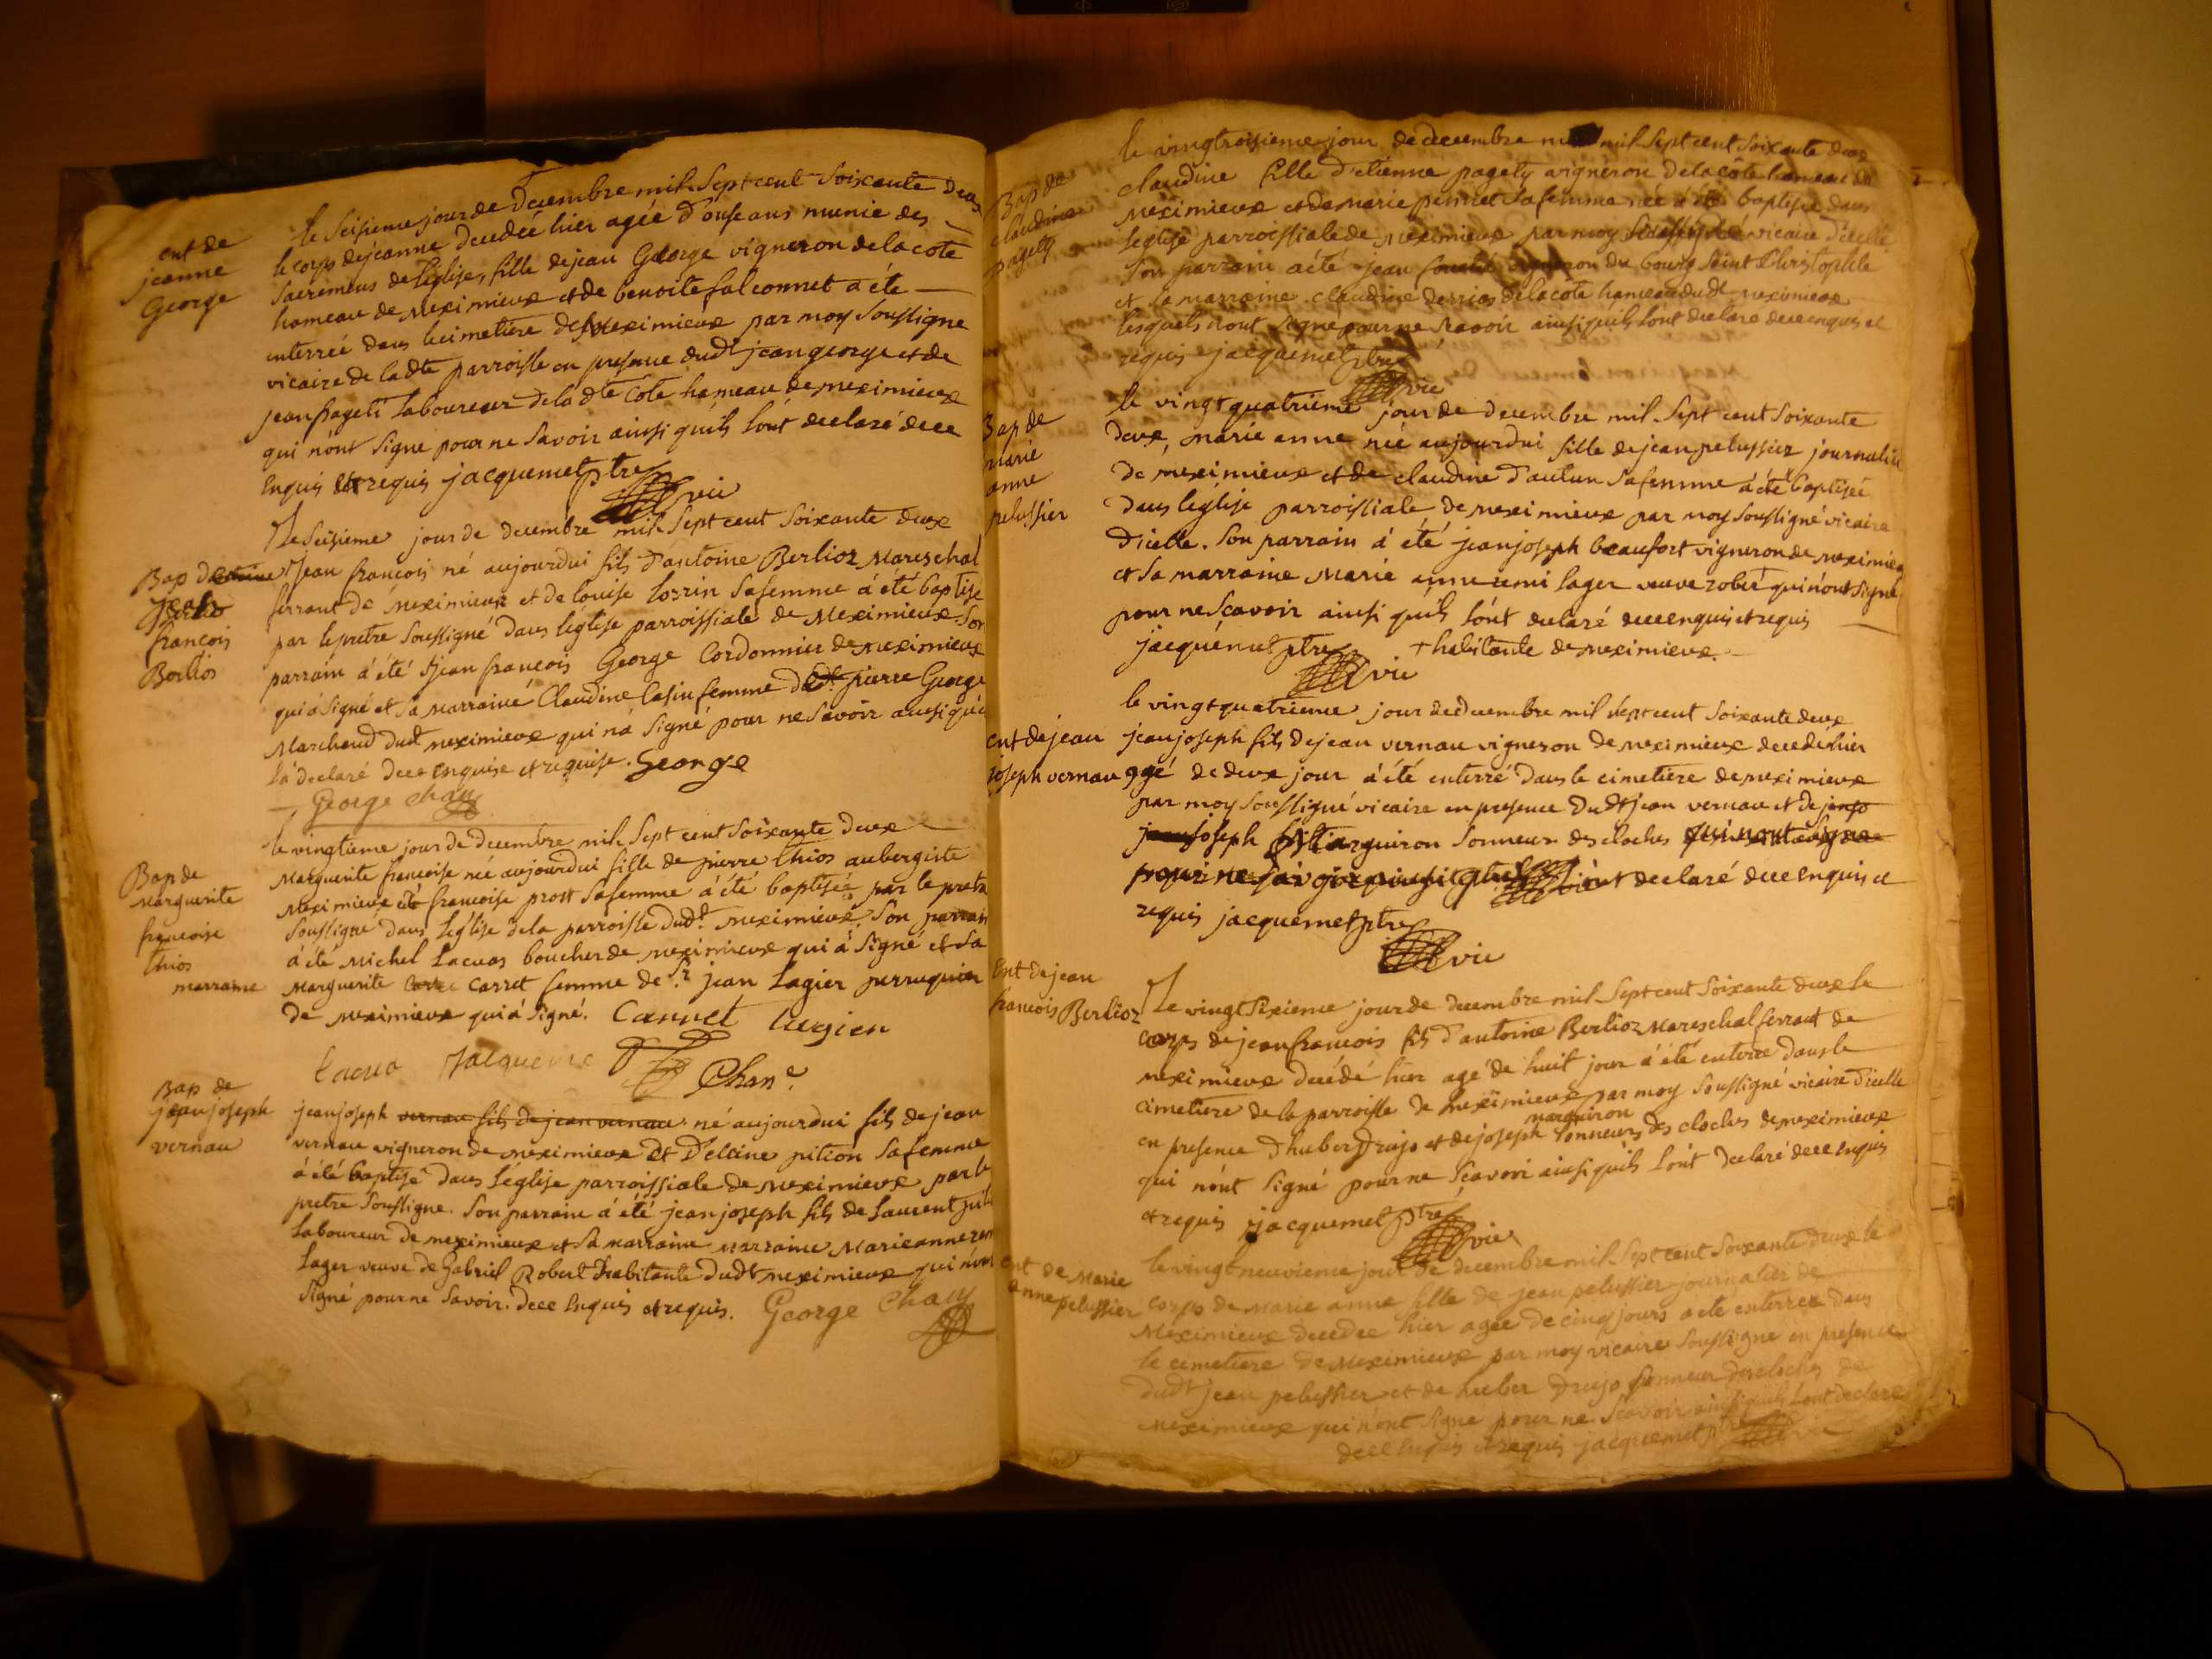 ent de
jeanne
George
le seisieme jour de decembre mil Sept cent Soixante deux
le corps de jeanne decedée hier agée d'onse ans munie des
Sacremens de leglise, fille de jean George vigneron de la cote
hameau de Meximieux et de benoite falconnet a été
enterrée dans le cimetiere de Meximieux par moy Soussigne
vicaire de ladte parroisse en presence dudt jean george et de
jean pageti Laboureur de la dte Cote hameau de meximieux
qui n'ont Signe pour ne Savoir ainsi quils L'ont declaré de ce
Enquis et requis jacquemet ptre
vic
Bap d
jean
francois
Berlios
Le Seisieme jour de decembre mil Sept cent Soixante deux
Jean francois né aujourdui fils d'antoine Berlioz Mareschal
ferrant de meximieux et de louise lorrin Safemme à été baptisé
par le pretre Soussigné dans l'église parroissiale de Meximieux Son
parrain à été jean francois George Cordonnier de meximieux
qui à Signé et Sa Marraine Claudine Casin femme de pierre George
Marchand dudt meximieux qui na Signé pour ne Savoir ainsi quelle
la declaré de ce enquise et requise. George
George chan
Bap de
Marguerite
francoise
thios
marraine
le vingtieme jour de decembre mil Sept cent Soixante deux
Marguerite francoise née aujourdui fille de pierre thios aubergiste
Meximieux et francoise prost Safemme à été baptisée par le pretre
Soussigné dans l'église de la parroisse dudt. meximieux. Son parrain
à été Michel Lacuas boucher de meximieux qui à Signé et Sa
Marguerite Carret femme de Sr. jean Lagier perruquier
de meximieux qui à Signé. Carret Lagier
Lacua Jacqueme
Chane.
Bap de
jean joseph
vernau
jean joseph vernau fils de jean vernau né aujourdui fils de jean
vernau vigneron de meximieux et D'elcine pition Safemme
à été baptisé dans L'église parroissiale de meximieux par le
pretre Soussigne. Son parrain à été jean joseph fils de Laurent
Laboureur de meximieux et Sa marraine marraine Marieanne
Lager veuve de Gabriel Robert habitante dudt meximieux qui n'ont
Signé pour ne Savoir. de ce Enquis et requis. George Chan
Bap de
claudine
pagety
le vingtroisieme jour de decembre mil Sept cent Soixante deux
claudine fille d'etienne pagety vigneron de la côte hameau de
Meximieux et de marie pennet Safemme née à été baptisée dans
leglise parroissiale de Meximieux par moy Soussigné vicaire d'icelle
Son parrain a été jean vigneron du bourg Saint Christophle
et Sa marraine claudine derrias de la cote hameau dudt meximieux
lesquels n'ont signe pour ne Savoir ainsi quils l'ont declaré de ce enquis et
requis jacquemet ptre
vic
Bap de
marie
anne
pelussier
le vingtquatrieme jour de decembre mil Sept cent Soixante
deux, marie anne née aujourdui fille de jean pelussier journalier
de meximieux et de claudine d'autun Safemme à été baptisée
dans l'eglise parroissiale de meximieux par moy Soussigné vicaire
d'icelle. Son parrain à été jeanjoseph beaufort vigneron de meximieux
et Sa marraine Marie anne remi lager veuve robert + qui n'ont signé
pour ne Scavoir ainsi quils l'ont declaré de ce enquis et requis
jacquemet ptre + habitante de meximieux.
vic
ent de jean
joseph vernau
le vingtquatrieme jour de decembre mil Sept cent Soixante deux
jeanjoseph fils de jean vernau vigneron de meximieux decedé hier
agé de deux jour à été enterré dans le cimetiere de meximieux
par moy Soussigné vicaire en presence dudt jean vernau et de
joseph Marguiron Sonneur des cloches qui n'ont signe
pour ne Savoir ainsi quils l'ont declaré de ce Enquis et
requis jacquemet ptre
vic
Ent de jean
francois Berlioz
Le vingt Sixieme jour de decembre mil Sept cent Soixante deux le
corps de jean francois fils d'antoine Berlioz Mareschal ferrant de
meximieux decédé hier agé de huit jour à été enterré dans le
cimetiere de la parroisse de meximieux par moy Soussigné vicaire d'icelle
en presence d'huber drujo et de joseph marguiron Sonneurs des cloches de meximieux
qui n'ont Signé pour ne Scavoir ainsi quils l'ont declaré de ce Enquis
et requis jacquemet ptre
vic
ent de Marie
anne pelussier
le vingt neuvieme jour de decembre mil Sept cent Soixante deux le
corps de marie anne fille de jean pelussier journalier de
Meximieux decedée hier agée de cinq jours a été enterrée dans
le cimetiere de Meximieux par moy vicaire Soussigne en presence
dudt jean pelussier et de huber drujo Sonneur des cloches de
meximieux qui n'ont Signe pour ne Scavoir ainsi quils L'ont declaré
de ce Enquis et requis jacquemet ptre vic